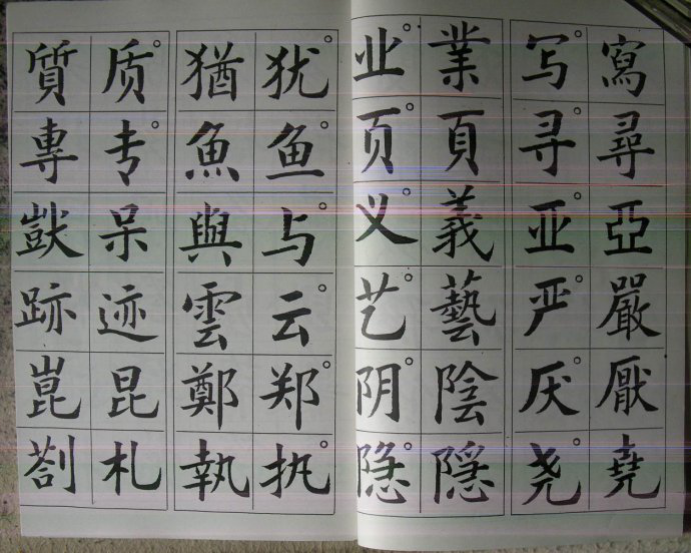 寫尋亞嚴厭堯
写寻亚严厌尧
業頁義藝陰隱
业页义艺阴隐
犹鱼与云郑执
猶魚與雲鄭執
质专呆迹昆札
質專獃跡崑劄